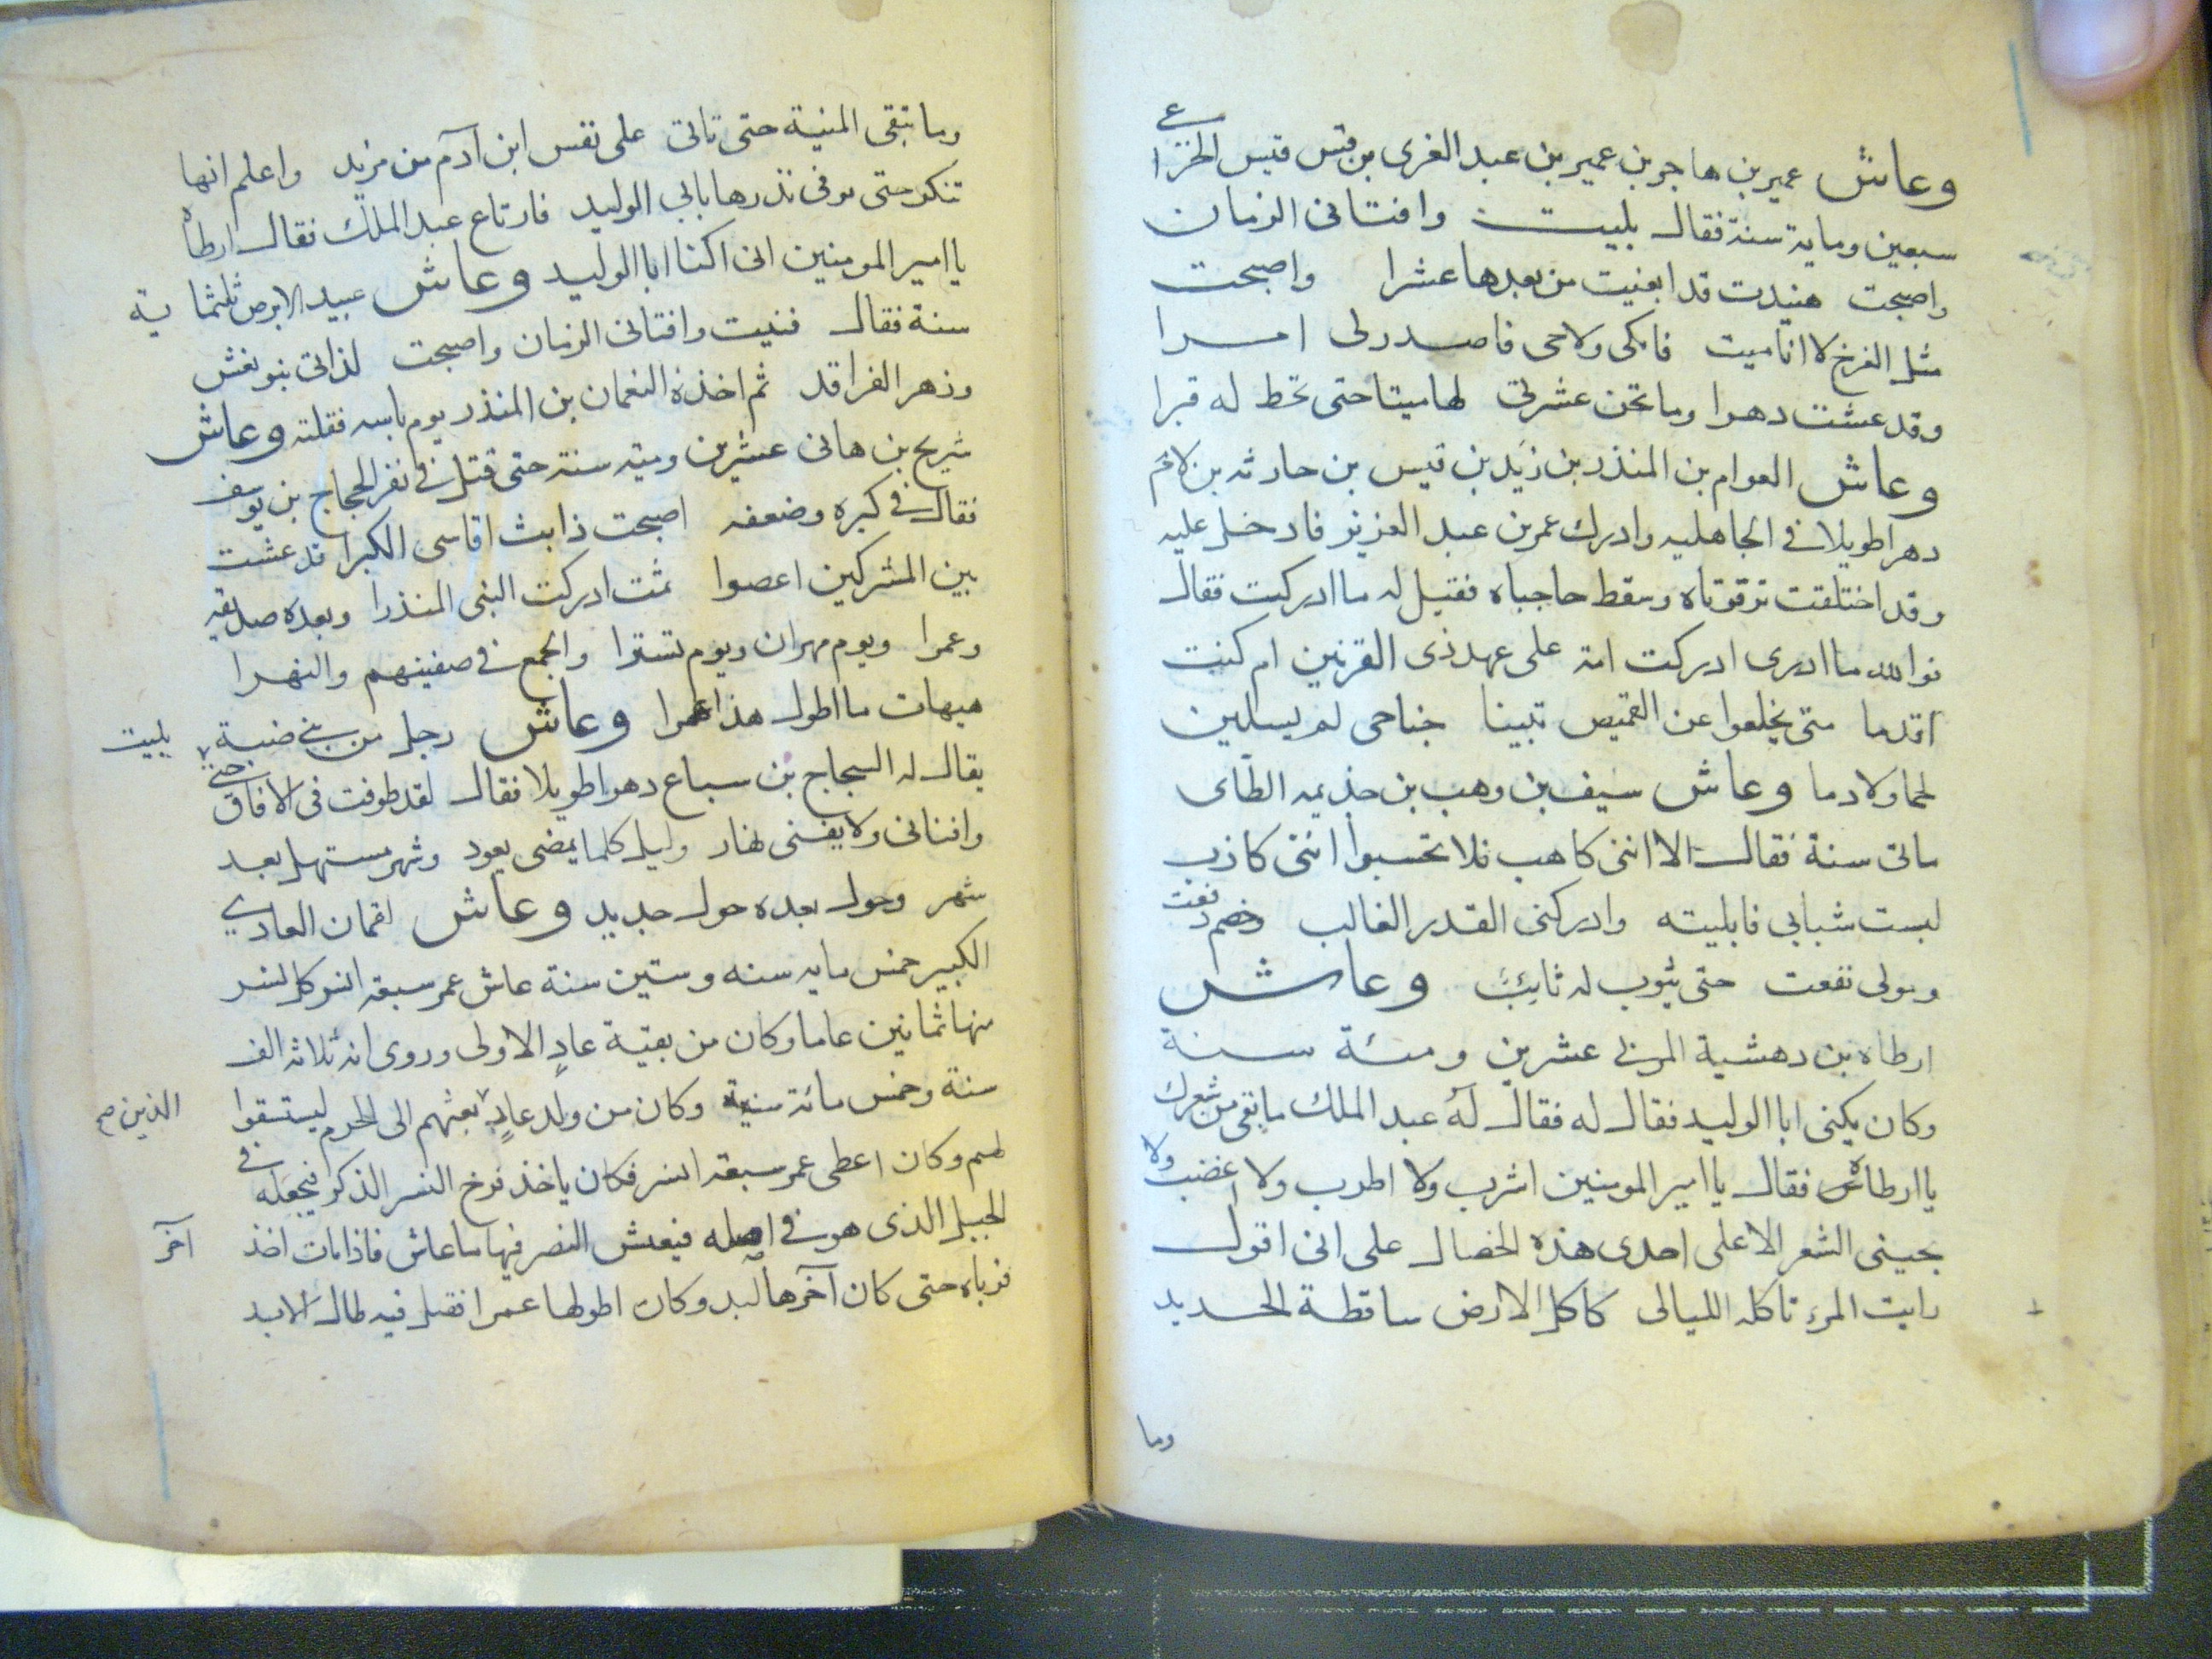 وعاش عمير بن هاجر بن عمير بن عبد العزى بن قيس الخزاعى
سبعين وماية سنة فقال بليت وافنانى الزمان
واصبحت هنيدت قد ابغيت من بعدها عشرا واصبحت
مثل الفرخ لا انا ميت فابكى ولا حى فاصدر لى امرا
وقد عشت دهرا وما تحن عشرتى لها ميتا حتى تخط له قبرا
وعاش العوام بن المنذر بن زيد بن قيس بن حارثه بن لام
دهرا طويلا فى الجاهليه وادرك عمر بن عبد العزيز فادخل عليه
وقد اختلفت ترقوتاه وسقط حاجباه فقيل له ما ادركت فقال
فوالله ما ادرى ادركت امة على عهد ذى القرنين ام كنت
اقدما متى يخلعوا عن القميص تبينا جناحى لم يسلين
لحما ولا دما وعاش سيف بن وهب بن جذيمه الطاى
ماتى سنة فقال الا اننى كاهب فلا تحسبوا اننى كاذب
لبست شبابى فابليته وادركنى القدر الغالب وخصم دفعت
ومولى نفعت حتى يثوب له ثايب وعاش
ارطاه بن دهشية المرى عشرين ومئة سنة
وكان يكنى ابا الوليد فقال له فقال له عبد الملك ما بقى من شعرك
يا ارطاه فقال يا امير المومنين اشرب ولا اطرب ولا اغضب ولا
يجينى الشعر الا على احدى هذه الخصال على انى اقول
رايت المرء تاكله الليالى كاكل الارض ساقطة الحديد
وما
وما تبقى المنية حتى تاتى على نفس ابن آدم من مزيد واعلم انها
تنكر حتى توفى نذرها بابى الوليد فارتاع عبد الملك فقال ارطاه
يا امير المومنين انى اكنا ابا الوليد وعاش عبيد الابرص ثلثماية
سنة فقال فنيت وافنانى الزمان واصبحت لذاتى بنو نعش
وزهر الفراقد ثم اخذه النعمان بن المنذر يوم باسه فقتله وعاش
شريح بن هانى عشرين وميه سنة حتى قتل فى نفر الحجاج بن يوسف
فقال فى كبره وضعفه اصبحت ذا بث اقاسى الكبرا قد عشت
بين المشركين اعصوا ثمت ادركت النبى المنذرا وبعده صديقه
وعمرا ويوم مهران ويوم تسترا والجمع فى صفينهم والنهرا
هيهات ما اطول هذا عمرا وعاش رجل من بنى ضبة
يقال له السجاج بن سباع دهرا طويلا فقال لقد طوفت فى الافاق حتى بليت
وافنانى ولا يفنى نهار وليل كلما يمضى يعود وشهر مستهل بعد
شهر وحول بعده حول جديد وعاش لقمان العادى
الكبير خمس مايه سنه وستين سنة عاش عمر سبعة انسر كل نسر
منها ثمانين عاما وكان من بقية عاد الاولى وروى انه ثلاثه الف
سنة وخمس مائة سنة وكان من ولد عاد الذين صح بعثهم الى الحرم ليستسقوا
لهم وكان اعطى عمر سبعة انسر فكان ياخذ فرخ النسر الذكر فيجعله فى
الجبل الذى هو فى اصله فيعش النسر فيها ما عاش فاذا مات اخذ آخر
فرباه حتى كان آخرها لبد وكان اطولها عمرا فقيل فيه طال الابد